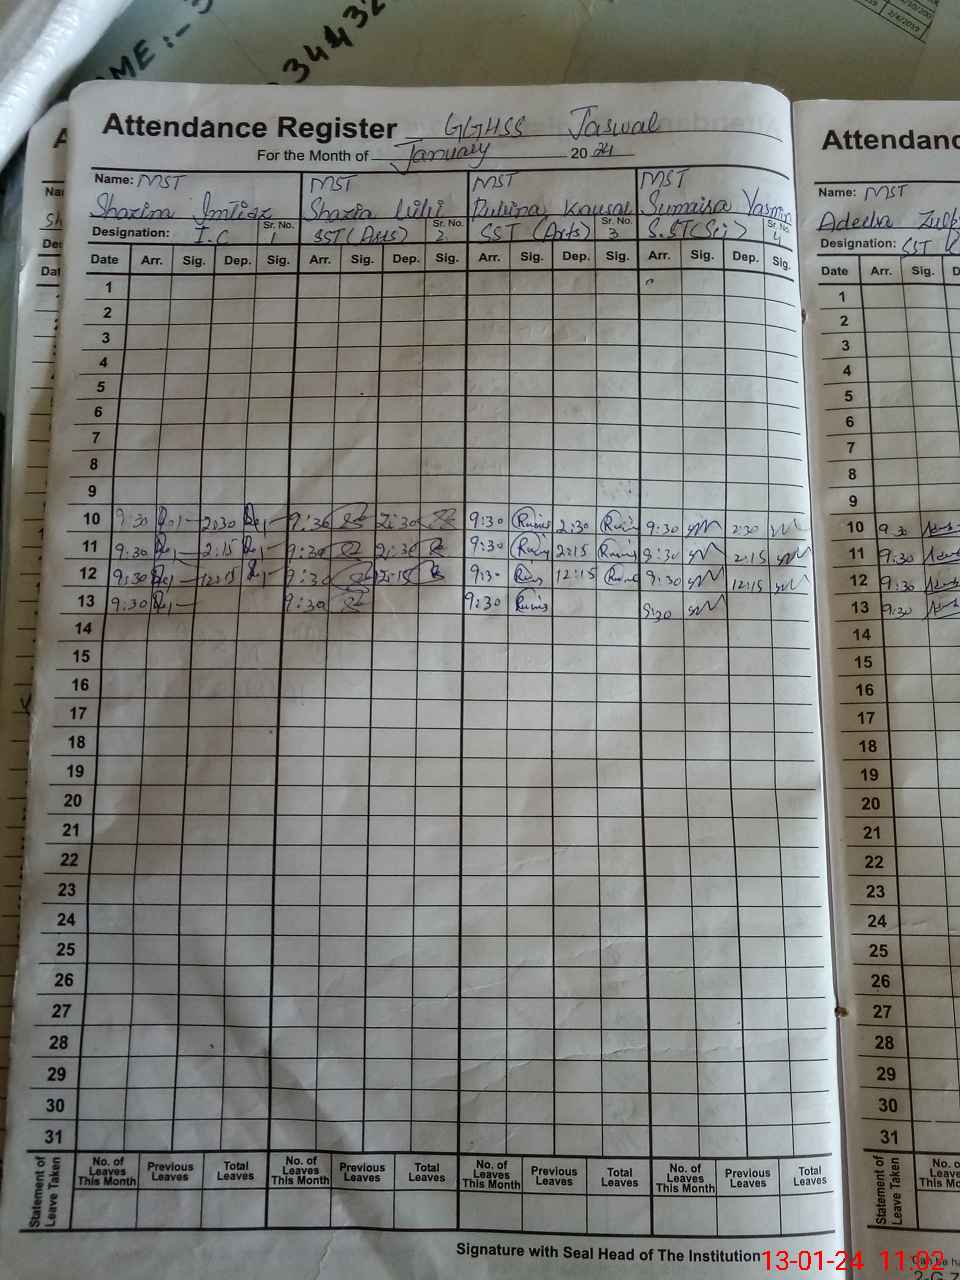 OME :-
34432
2/8/2019
Attendance Register GGHSS Jaswal
For the Month of January 2024
Name: MST MST MST MST
Shazina Imtiaz Shazia Rubina Kausar Sumaira Yasmin
Designation: I.C Sr. No. 1 SST (Arts) Sr. No. 2 SST (Arts) Sr. No. 3 S.ST(Sci) Sr. No. 4
Date Arr. Sig. Dep. Sig. Arr. Sig. Dep. Sig. Arr. Sig. Dep. Sig. Arr. Sig. Dep. Sig.
1
2
3
4
5
6
7
8
9
10 9:30 2:30 9:30 2:30 9:30 2:30 9:30 2:30
11 9:30 2:15 9:30 2:30 9:30 2:15 9:30 2:15
12 9:30 12:15 9:30 12:15 9:30 12:15 9:30 12:15
13 9:30 9:30 9:30 9:30
14
15
16
17
18
19
20
21
22
23
24
25
26
27
28
29
30
31
Statement of Leave Taken
No. of Leaves This Month Previous Leaves Total Leaves No. of Leaves This Month Previous Leaves Total Leaves No. of Leaves This Month Previous Leaves Total Leaves No. of Leaves This Month Previous Leaves Total Leaves
Signature with Seal Head of The Institution
Attendanc
Name: MST
Adeeba
Designation: SST
Date Arr. Sig. D
1
2
3
4
5
6
7
8
9
10 9:30
11 9:30
12 9:30
13 9:30
14
15
16
17
18
19
20
21
22
23
24
25
26
27
28
29
30
31
Statement of Leave Taken
No. of Leaves This Mo
13-01-24 11:02